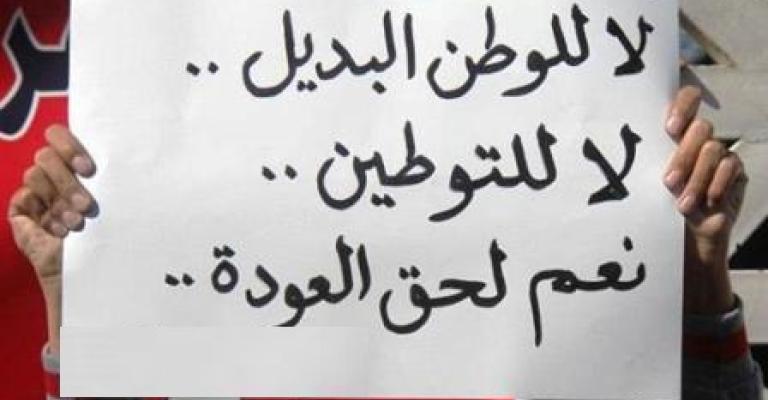 لا للوطن البديل ..
لا للتوطين ..
نعم لحق العودة ..